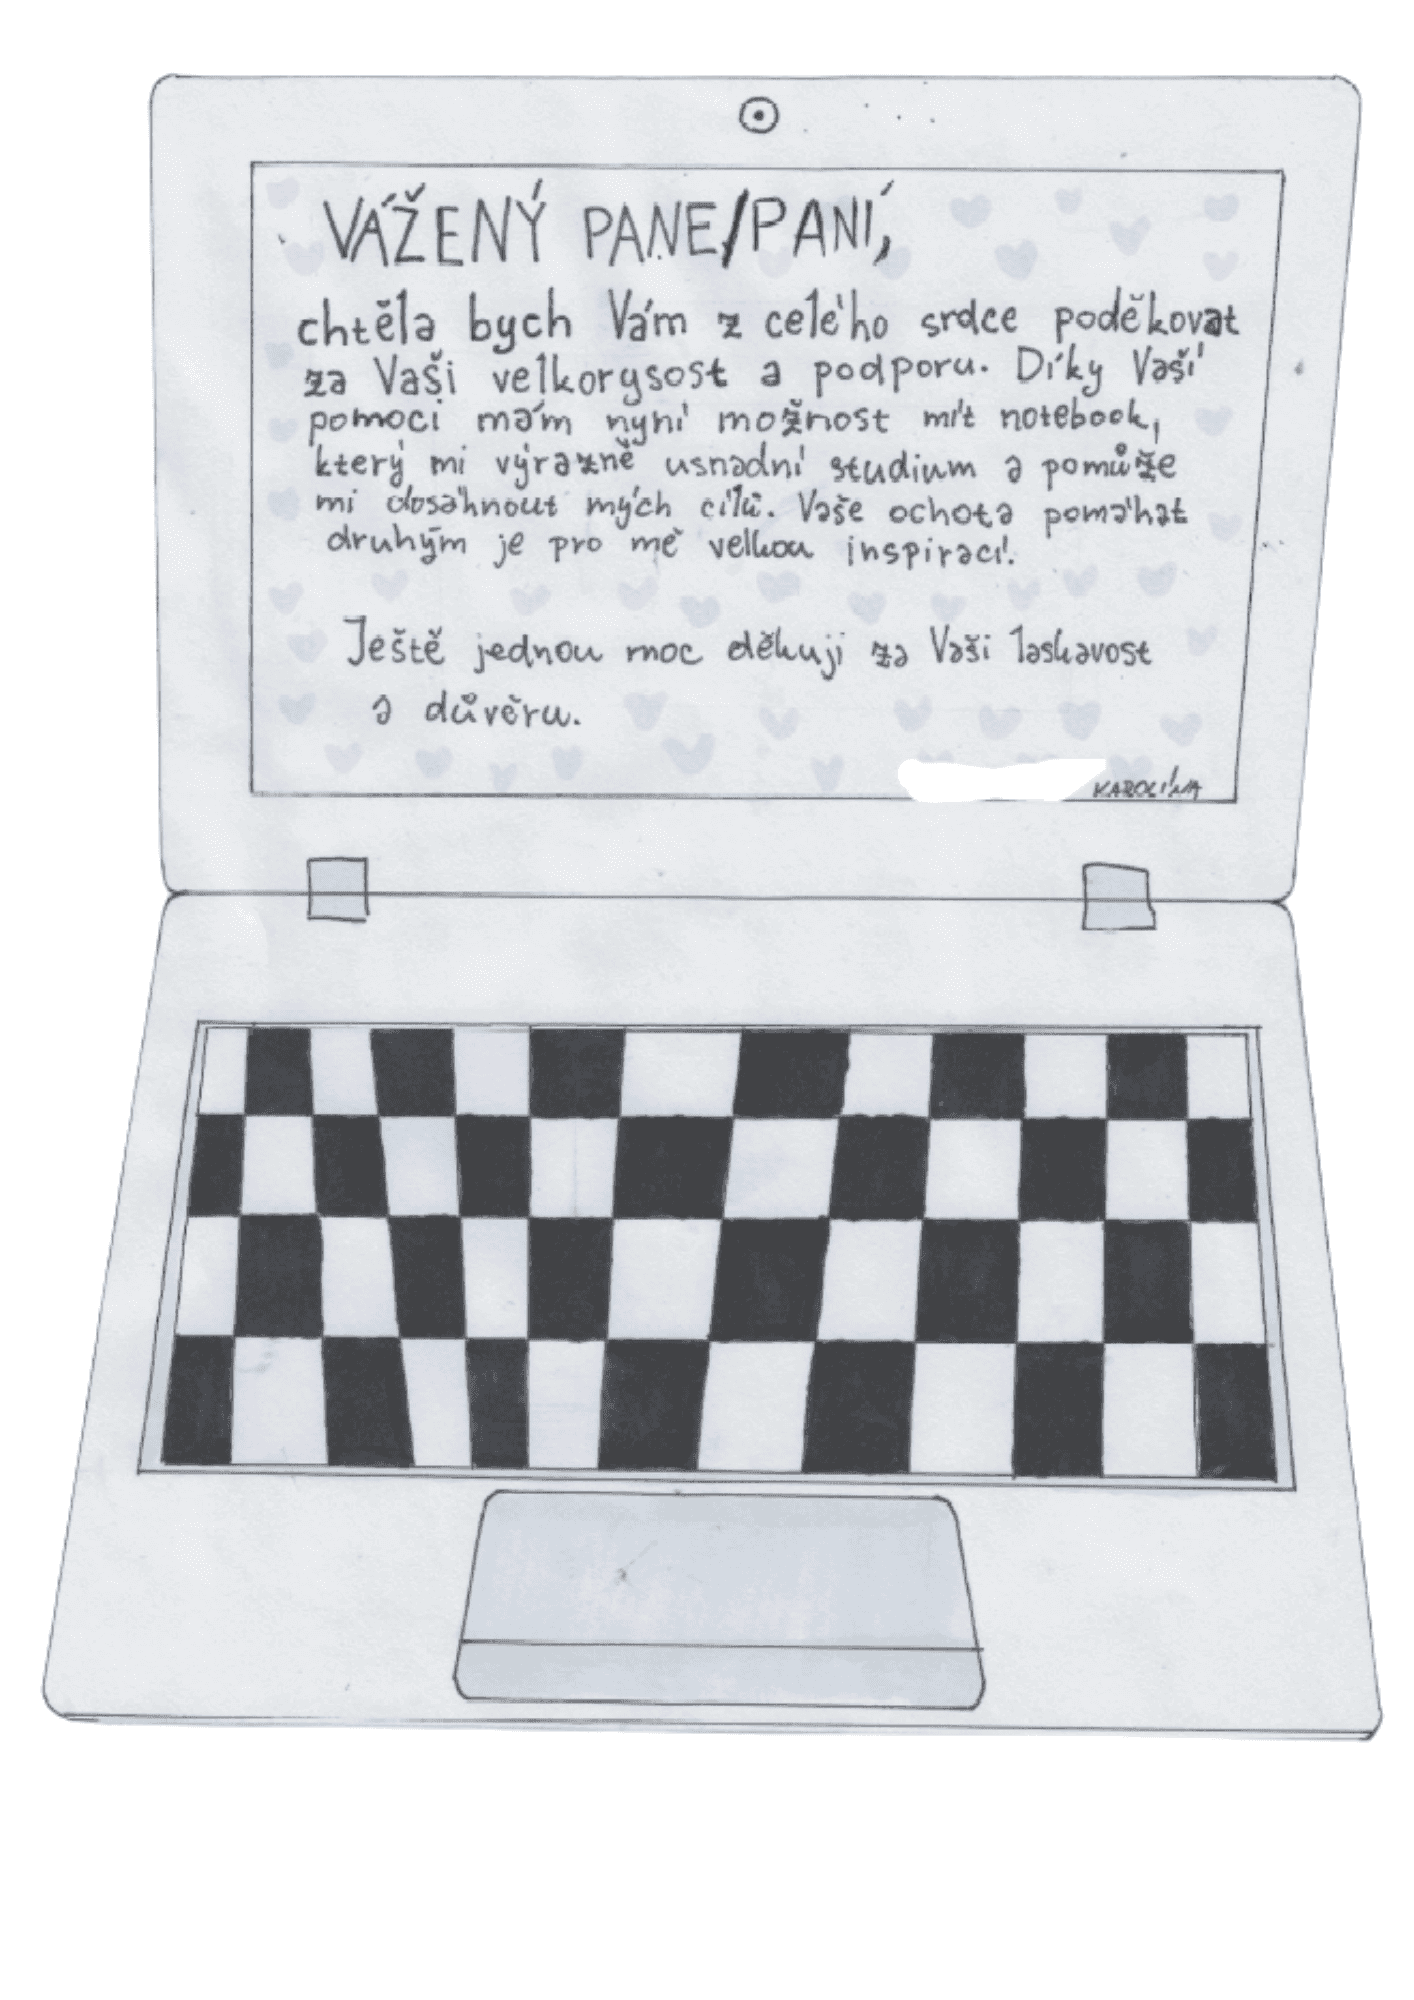 VÁŽENÝ PANE/PANÍ,
chtěla bych Vám z celého srdce poděkovat
za Vaši velkorysost a podporu. Díky Vaší
pomoci mám nyní možnost mít notebook,
který mi výrazně usnadní studium a pomůže
mi dosáhnout mých cílů. Vaše ochota pomáhat
druhým je pro mě velkou inspirací.
Ještě jednou moc děkuji za Vaši laskavost
a důvěru.
KAROLÍNA